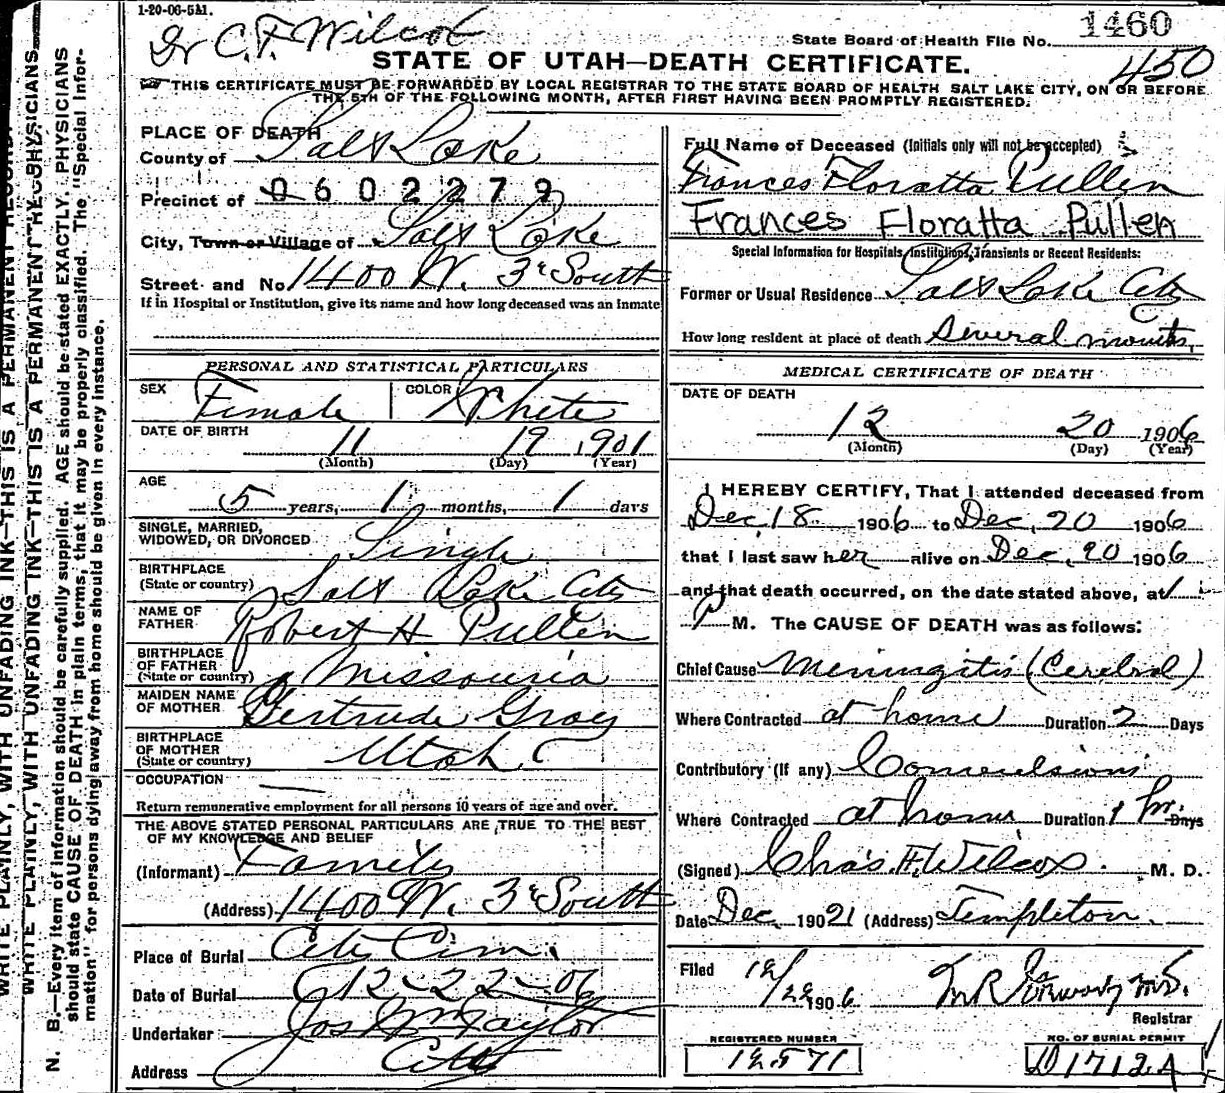 1-20-06-5M.
Dr C. F. Wilcox
State Board of Health File No. 1460
450
STATE OF UTAH—DEATH CERTIFICATE.
THIS CERTIFICATE MUST BE FORWARDED BY LOCAL REGISTRAR TO THE STATE BOARD OF HEALTH SALT LAKE CITY, ON OR BEFORE
THE 5TH OF THE FOLLOWING MONTH, AFTER FIRST HAVING BEEN PROMPTLY REGISTERED.
WRITE PLAINLY, WITH UNFADING INK—THIS IS A PERMANENT RECORD.
WRITE PLAINLY, WITH UNFADING INK—THIS IS A PERMANENT RECORD.
N. B.—Every item of information should be carefully supplied. AGE should be stated EXACTLY. PHYSICIANS
should state CAUSE OF DEATH in plain terms, that it may be properly classified. The "Special Infor-
mation" for persons dying away from home should be given in every instance.
PLACE OF DEATH
County of Salt Lake
Precinct of 0602279
City, Town or Village of Salt Lake
Street and No. 1400 W. 3d South
If in Hospital or Institution, give its name and how long deceased was an inmate
PERSONAL AND STATISTICAL PARTICULARS
SEX Female COLOR White
DATE OF BIRTH 11 19 1901
(Month) (Day) (Year)
AGE
5 years, 1 months, 1 days
SINGLE, MARRIED,
WIDOWED, OR DIVORCED Single
BIRTHPLACE
(State or country) Salt Lake City
NAME OF
FATHER Robert H Pullen
BIRTHPLACE
OF FATHER
(State or country) Missouria
MAIDEN NAME
OF MOTHER Gertrude Gray
BIRTHPLACE
OF MOTHER
(State or country) Utah
OCCUPATION
Return remunerative employment for all persons 10 years of age and over.
THE ABOVE STATED PERSONAL PARTICULARS ARE TRUE TO THE BEST
OF MY KNOWLEDGE AND BELIEF
(Informant) Family
(Address) 1400 W. 3d South
Place of Burial City Cem.
Date of Burial 12-22-06
Undertaker Jos Wm Taylor
Address City
Full Name of Deceased (Initials only will not be accepted)
Frances Floratta Pullen
Frances Floratta Pullen
Special Information for Hospitals, Institutions, Transients or Recent Residents:
Former or Usual Residence Salt Lake City
How long resident at place of death Several months,
MEDICAL CERTIFICATE OF DEATH
DATE OF DEATH
12 20 1906
(Month) (Day) (Year)
I HEREBY CERTIFY, That I attended deceased from
Dec 18 1906 to Dec. 20 1906
that I last saw her alive on Dec. 20 1906
and that death occurred, on the date stated above, at 1
P M. The CAUSE OF DEATH was as follows:
Chief Cause Meningitis (Cerebral)
Where Contracted at home Duration 2 Days
Contributory (If any) Convulsions
Where Contracted at home Duration 1 hr. Days
(Signed) Chas. F. Wilcox. M. D.
Date Dec 190 21 (Address) Templeton
Filed 12/22 1906 M. D.
Registrar
REGISTERED NUMBER NO. OF BURIAL PERMIT
12571 D1712A